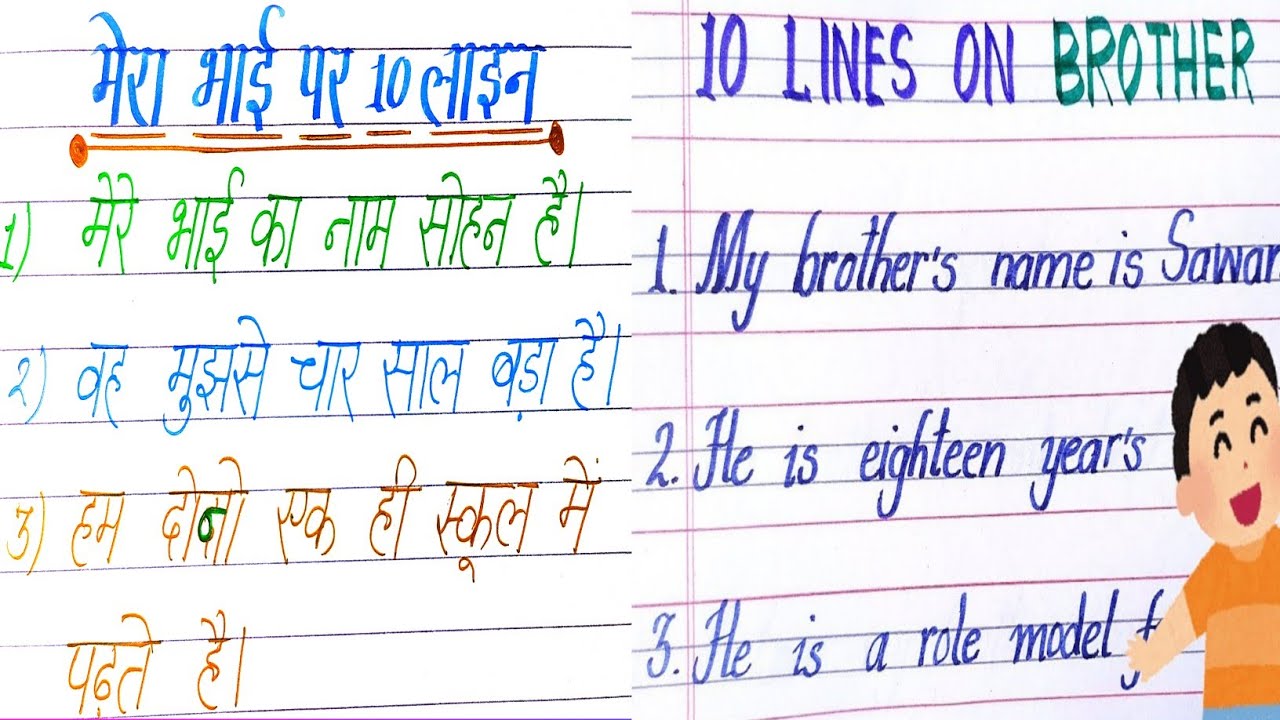 मेरा भाई पर 10 लाइन
1) मेरे भाई का नाम सोहन है।
२) वह मुझसे चार साल बड़ा है।
३) हम दोनो एक ही स्कूल में
पढ़ते है।
10 LINES ON BROTHER
1. My brother's name is
2. He is eighteen year's
3. He is a role model